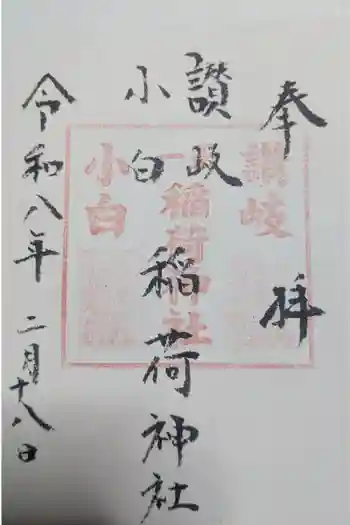 奉拝
讃岐
小白
稲荷神社
令和八年二月十八日
讃岐
稲荷神社
小白